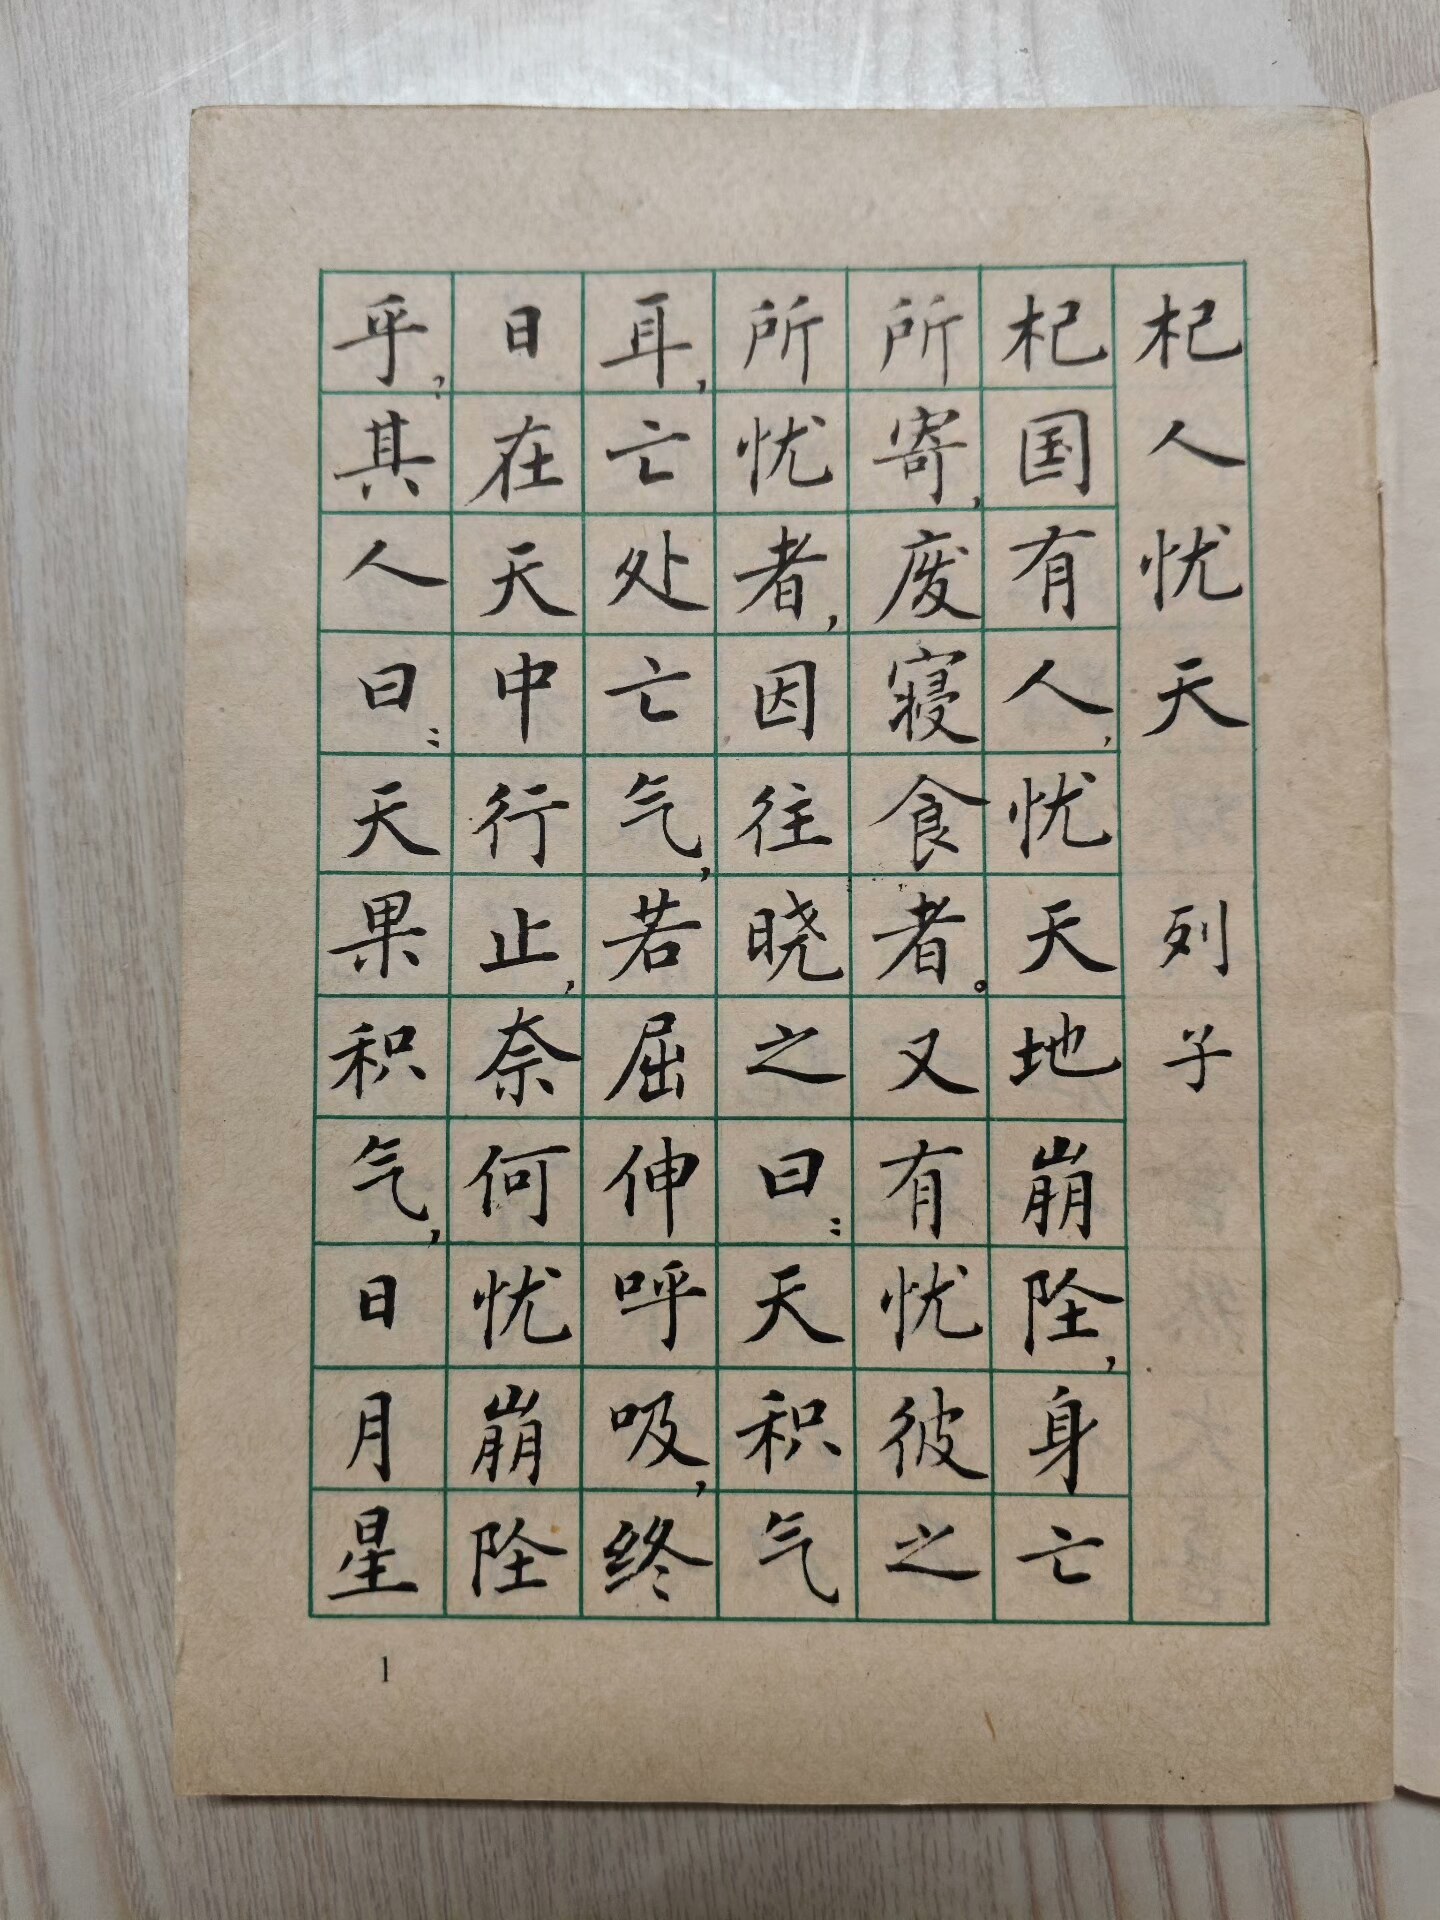 杞人忧天 列子
杞国有人,忧天地崩坠,身亡
所寄,废寝食者。又有忧彼之
所忧者,因往晓之曰:天积气
耳,亡处亡气,若屈伸呼吸,终
日在天中行止,奈何忧崩坠
乎?其人曰:天果积气,日月星
1